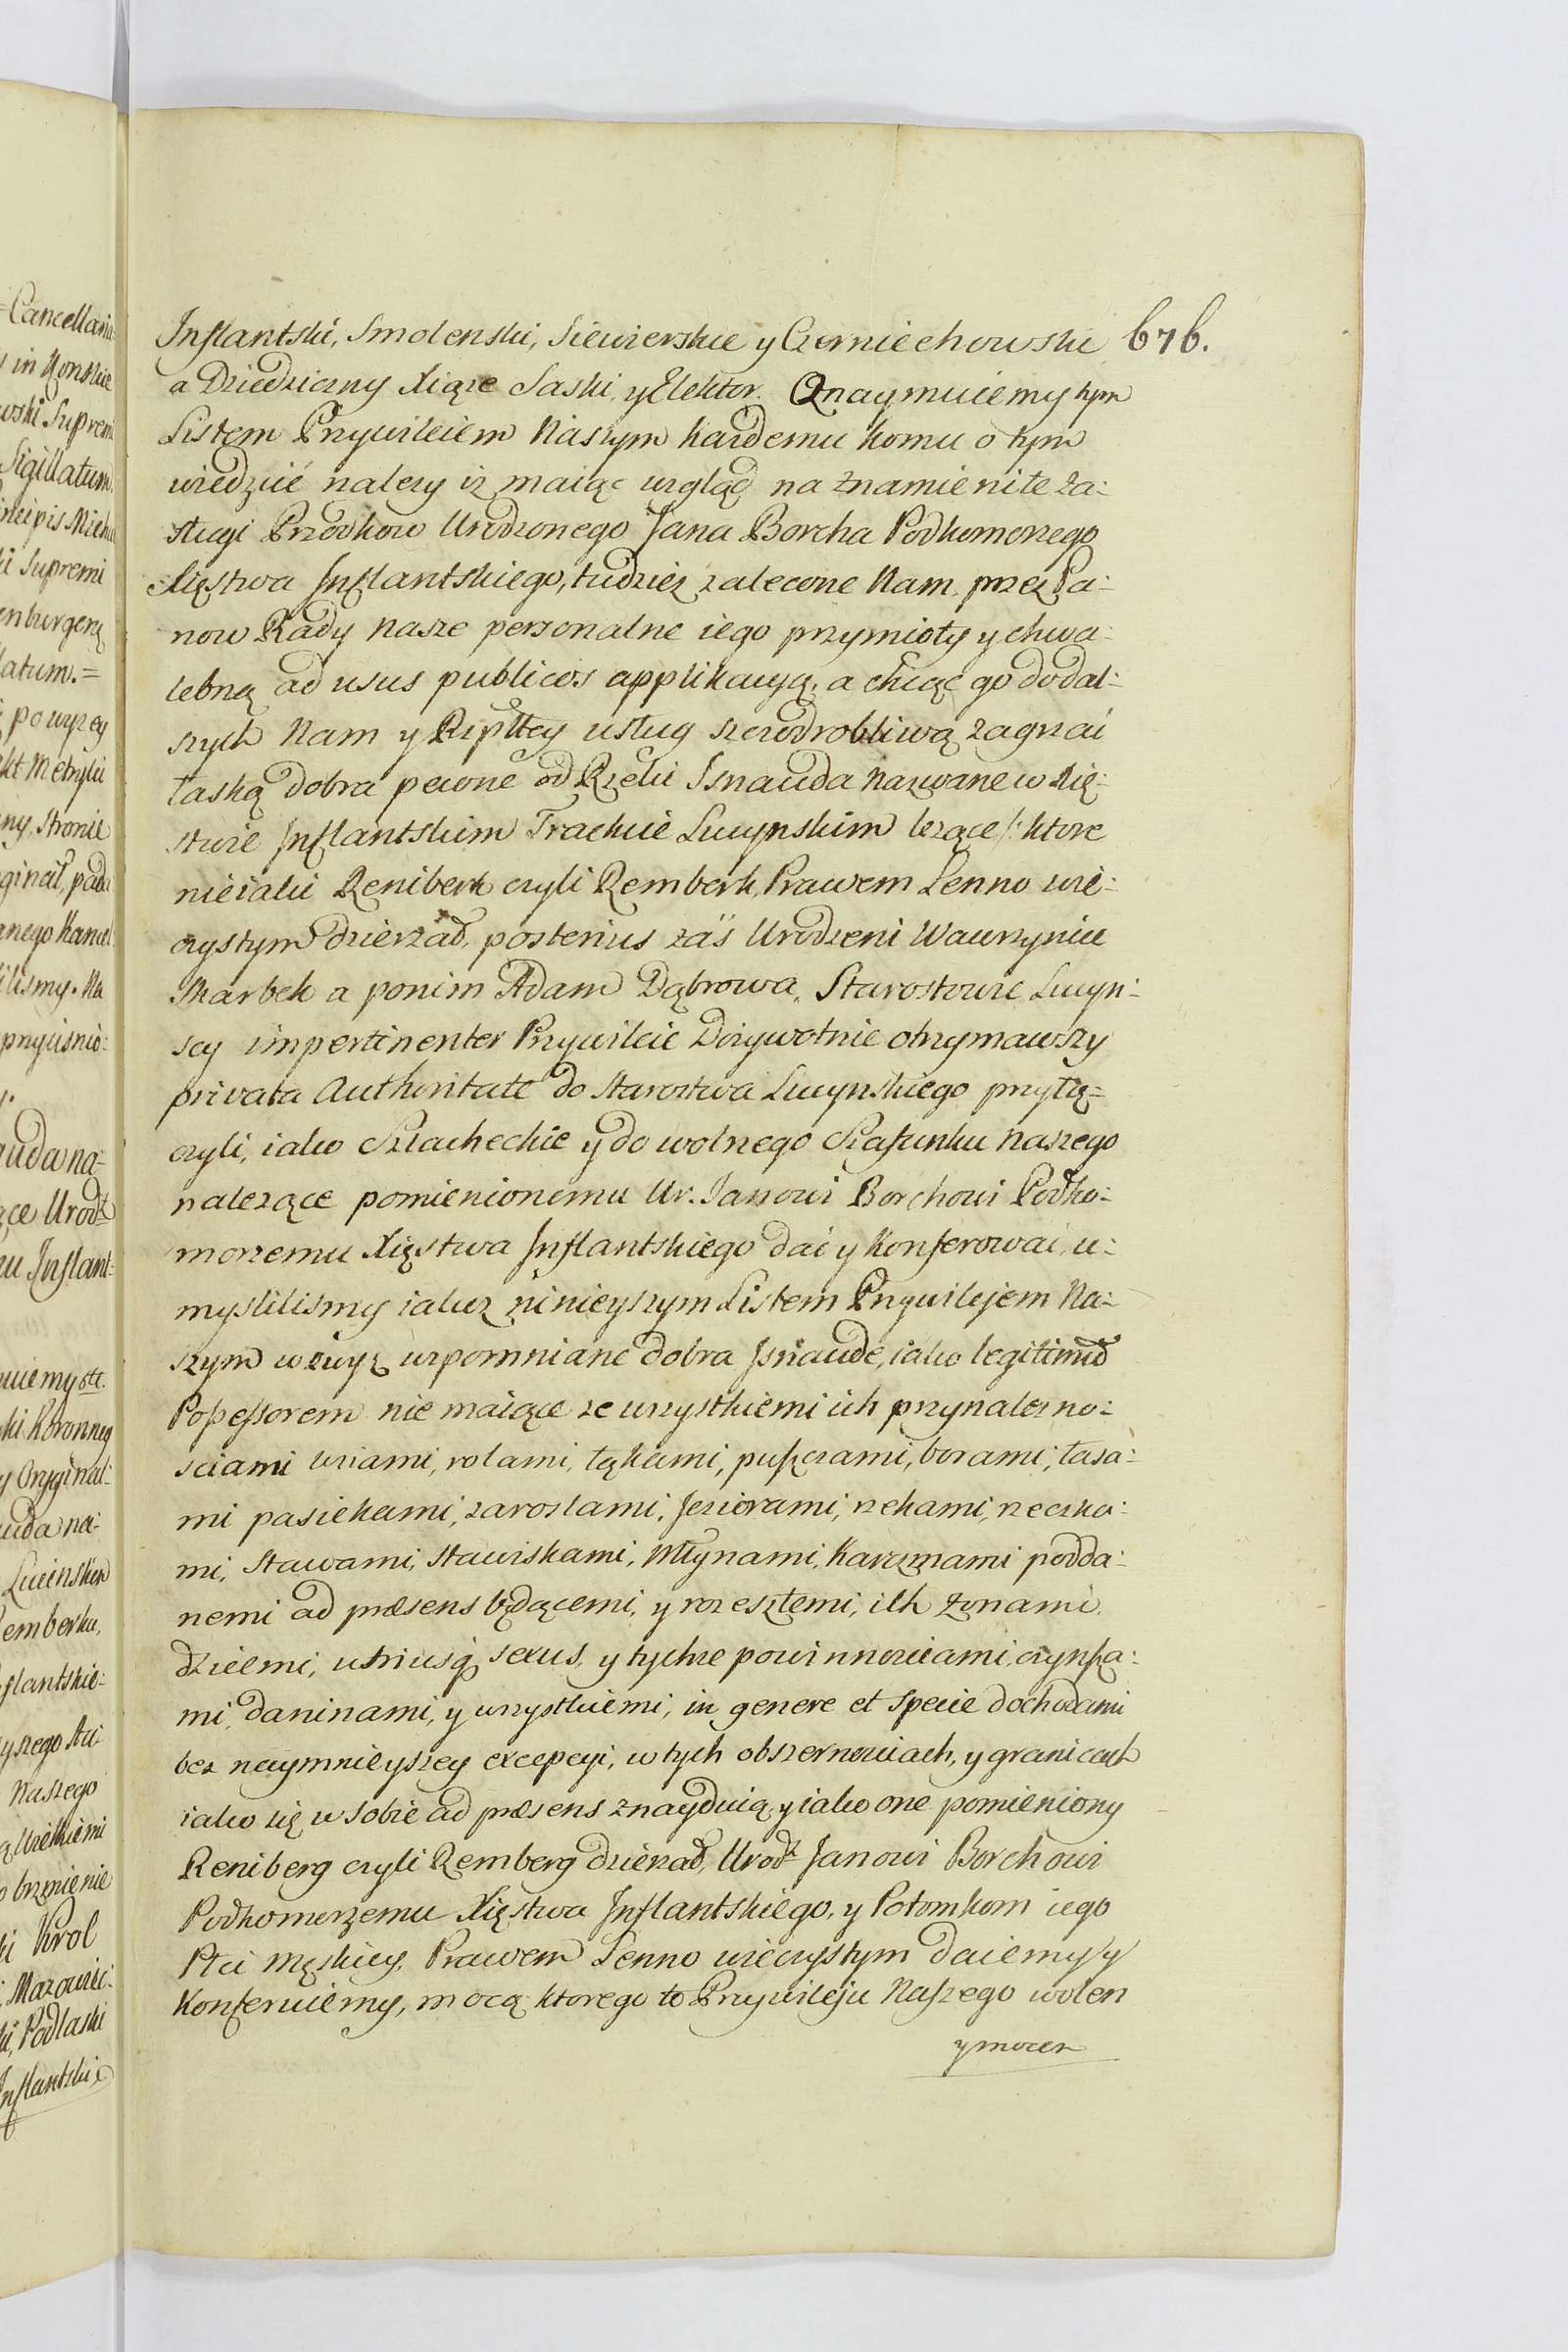 Inflantski, Smolenski, Siewierskie y Czerniechowski 676.
a Dziedziczny Xiąze Saski, y Elektor. Oznaymuiemy tym
Listem Przywileiem Naszym kazdemu komu o tym
wiedzieć nalezy iz maiąc wzgląd na znamienite za:
sługi Przodkow Urodzonego Jana Borcha Podkomorzego
Xięstwa Inflantskiego, tudziez zalecone Nam przez Pa:
now Rady Nasze personalne iego przymioty y chwa:
lebną ad usus publicos applikacyą, a chcąc go do dal:
szych Nam y Rzpltey usług szczodrobliwą zagrzać
łaską dobra pewne od Rzeki Isnauda nazwane w Xię:
stwie Inflantskim Trackcie Lucynskim lezące /: ktore
nieiaki Reniberk czyli Remberk, Prawem Lenno wie:
czystym dzierzał, posterius zaś Urodzeni Wawrzyniec
Skarbek a ponim Adam Dąbrowa, Starostowie Lucyn:
scy impertinenter Przywileie Dozywotnie otrzymawszy
privata Authoritate do Starostwa Lucynskiego przyłą=
czyli, iako Szlacheckie y do wolnego Szafunku naszego
nalezące pomienionemu Ur. Janowi Borchowi Podko:
morzemu Xięstwa Inflantskiego dać y konferować u:
myslilismy iakoz ninieyszym Listem Przywilejem Na:
szym wzwyz wspomniane dobra Isnaude, iako legitimū
Possessorem nie maiące ze wszystkiemi ich przynalezno:
sciami wsiami, rolami, łąkami, puszczami, borami, lasa:
mi pasiekami, zaroslami, Jeziorami, rzekami, rzeczka:
mi, Stawami, Stawiskami, Młynami, Karczmami podda:
nemi ad præsens będącemi, y rozeszłemi, ich Zonami,
dziećmi, utriusq sexus, y tychze powinnosciami, czynsza:
mi, daninami, y wszystkiemi, in genere et specie dochodami
bez naymnieyszey excepcyi, w tych obszernosciach, y granicach
iako się w sobie ad præsens znayduią, y iako one pomieniony
Reniberg czyli Remberg dzierzał, Urodz. Janowi Borchowi
Podkomorzemu Xięstwa Inflantskiego, y Potomkom iego
Płci Męskiey, Prawem Lenno wieczystym daiemy y
Konferuiemy, mocą ktorego to Przywileju Naszego wolen
y mocen